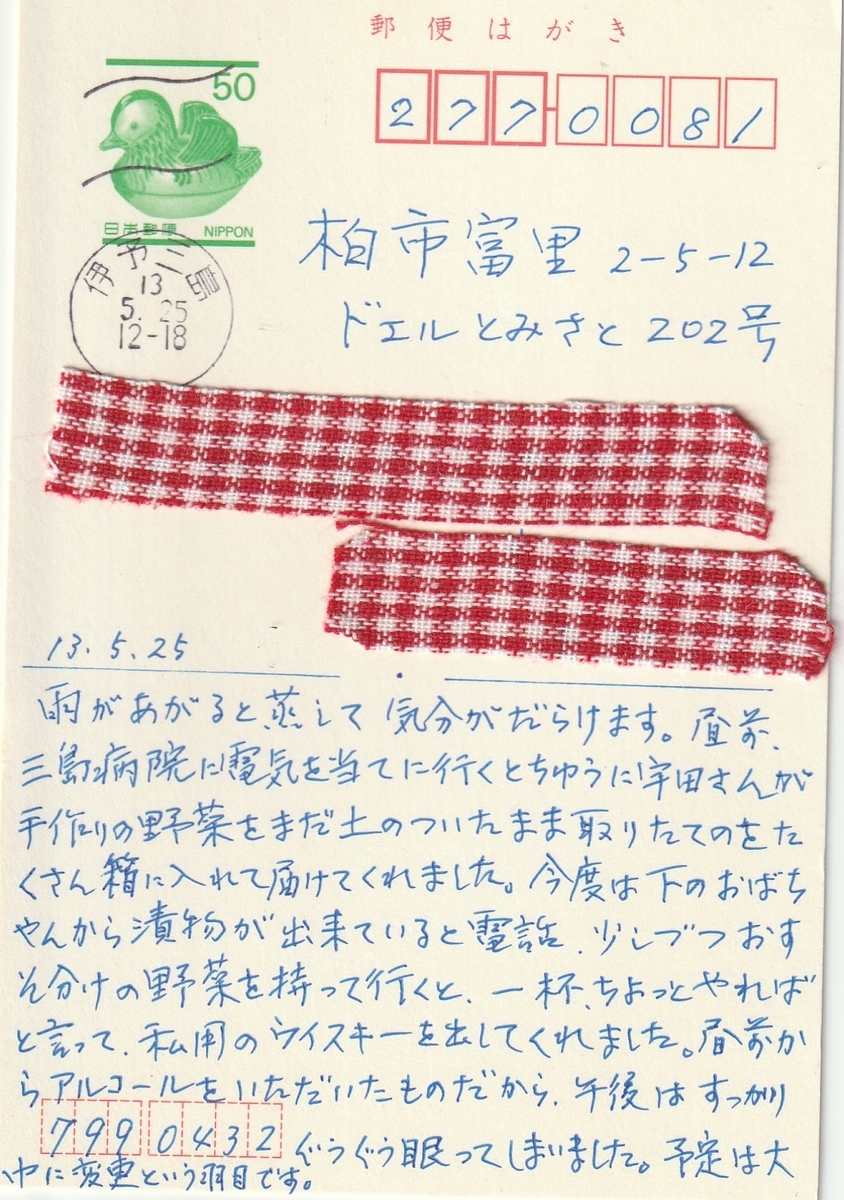 郵便はがき
50
日本郵便 NIPPON
277-0081
伊予三島
13
5.25
12-18
柏市富里 2-5-12
ドエルとみさと 202号
13.5.25
雨があがると蒸して気分がだらけます。昼前、
三島病院に電気を当てに行くとちゅうに宇田さんが
手作りの野菜をまだ土のついたまま取りたてのをた
くさん籠に入れて届けてくれました。今度は下のおばち
ゃんから漬物が出来ていると電話、少しづつおす
そ分けの野菜を持って行くと、一杯、ちょっとやれば
と言って、私用のウイスキーを出してくれました。昼前か
らアルコールをいただいたものだから、午後はすっかり
ぐうぐう眠ってしまいました。予定は大
巾に変更という羽目です。
7990432